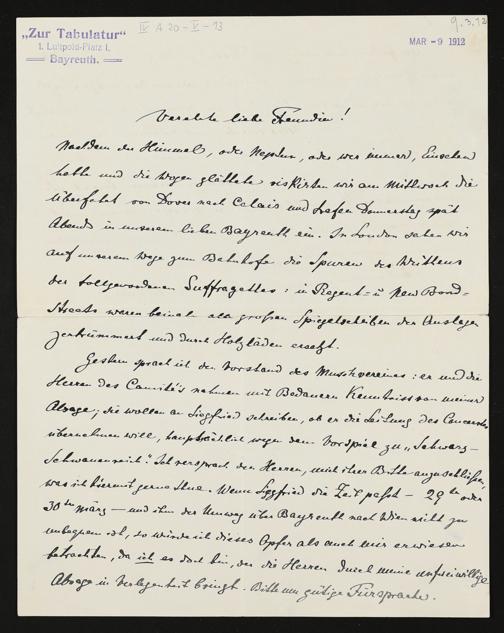 IV A 20 - V - 13
9.3.12
„Zur Tabulatur“
1. Luitpold-Platz 1.
Bayreuth.
MAR - 9 1912
Verehrte liebe Freundin!
Nachdem der Himmel, oder Neptun, oder wer immer, Einsehen
hatte und die Wogen glättete riskirten wir am Mittwoch die
Überfahrt von Dover nach Calais und trafen Donnerstag spät
Abends in unserem lieben Bayreuth ein. In London sahen wir
auf unserem Wege zum Bahnhofe die Spuren des Wüthens
der tollgewordenen Suffragettes: in Regent- u New Bond-
Streets waren beinah alle großen Spiegelscheiben der Auslagen
zertrümmert und durch Holzläden ersetzt.
Gestern sprach ich den Vorstand des Musikvereines: er und die
Herren des Comité's nahmen mit Bedauern Kenntniss von meiner
Absage; sie wollen an Siegfried schreiben, ob er die Leitung des Concertes
übernehmen will, hauptsächlich wegen dem Vorspiel zu „Schwarz-
Schwanenreich“. Ich versprach den Herren, mich ihrer Bitte anzuschließen,
was ich hiermit gerne thue. Wenn Siegfried die Zeit paßt – 29ten oder
30ten März – und ihm der Umweg über Bayreuth nach Wien nicht zu
unbequem ist, so würde ich dieses Opfer als auch mir erwiesen
betrachten, da ich es doch bin, der die Herren durch meine unfreiwillige
Absage in Verlegenheit bringt. Bitte um gütige Fürsprache.